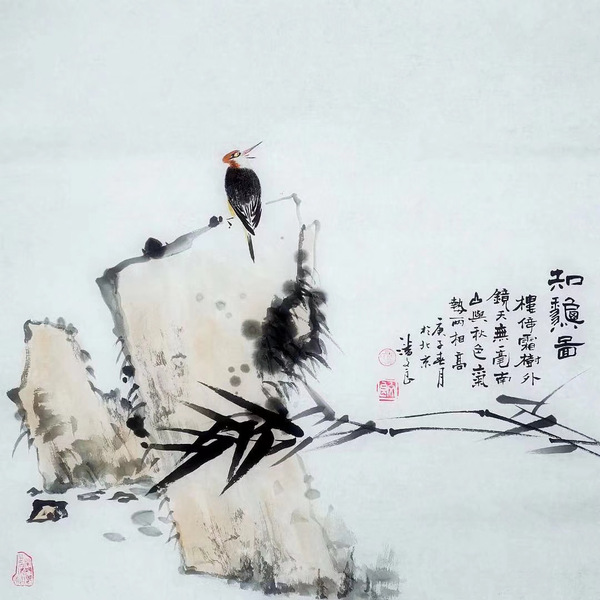 知龝啚
樓倚霜樹外
鏡天無一毫南
山與秋色氣
勢兩相高
庚子春月
於北京